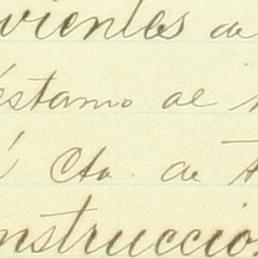 vientes de
éstamo al
Cta. de
nstruccio